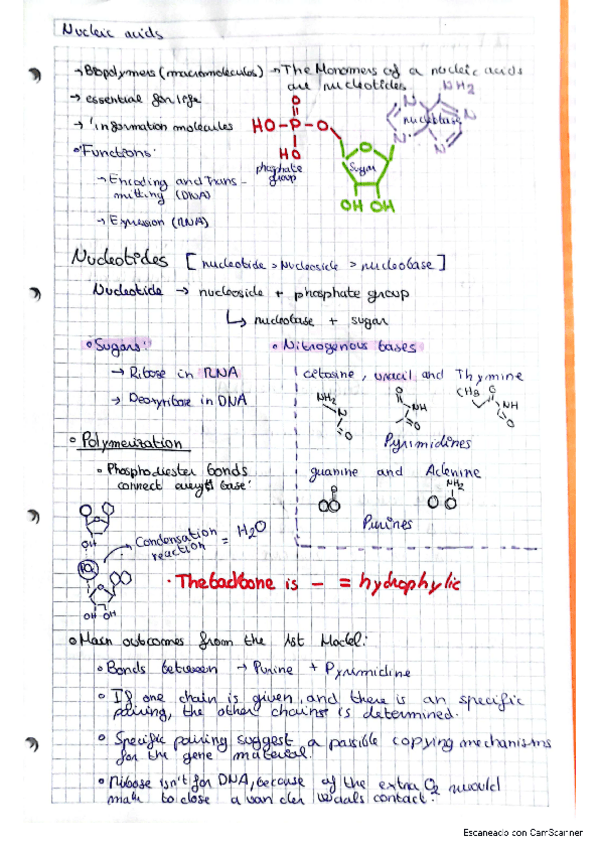 Nucleic acids
→ Biopolymers (macromolecules) → The Monomers of a nucleic acids
are nucleotides
→ essential for life
→ "information molecules
• Functions·
→ Encoding and Trans-
mitting (DNA)
→ Expression (RNA)
NH2
N
N
N
N
nucleobase
O
HO-P-O
HO
phosphate
group
O
Sugar
OH OH
Nucleotides [nucleotide > Nucleoside > nucleobase]
Nucleotide → nucleoside + phosphate group
↳ nucleobase + sugar
• Sugars"
→ Ribose in RNA
→ Deoxyribose in DNA
• Nitrogenous bases
cetosine, uracil and Thymine
NH2
N
O
O
NH
O
CH3
O
NH
O
Pyrimidines
guanine and Adenine
NH2
Purines
• Polymerization
• Phosphodiester bonds
connect every base'
OH
PO4
OH OH
Condensation
reaction = H2O
· The backbone is - = hydrophylic
• Main outcomes from the 1st Model:
• Bonds between → Purine + Pyrimidine
• If one chain is given, and there is an specific
pairing, the other chains is determined.
• Specific pairing suggest a possible copying mechanisms
for the gene material.
• Ribose isn't for DNA, because of the extra O2 would
make to close a van der waals contact.
Escaneado con CamScanner